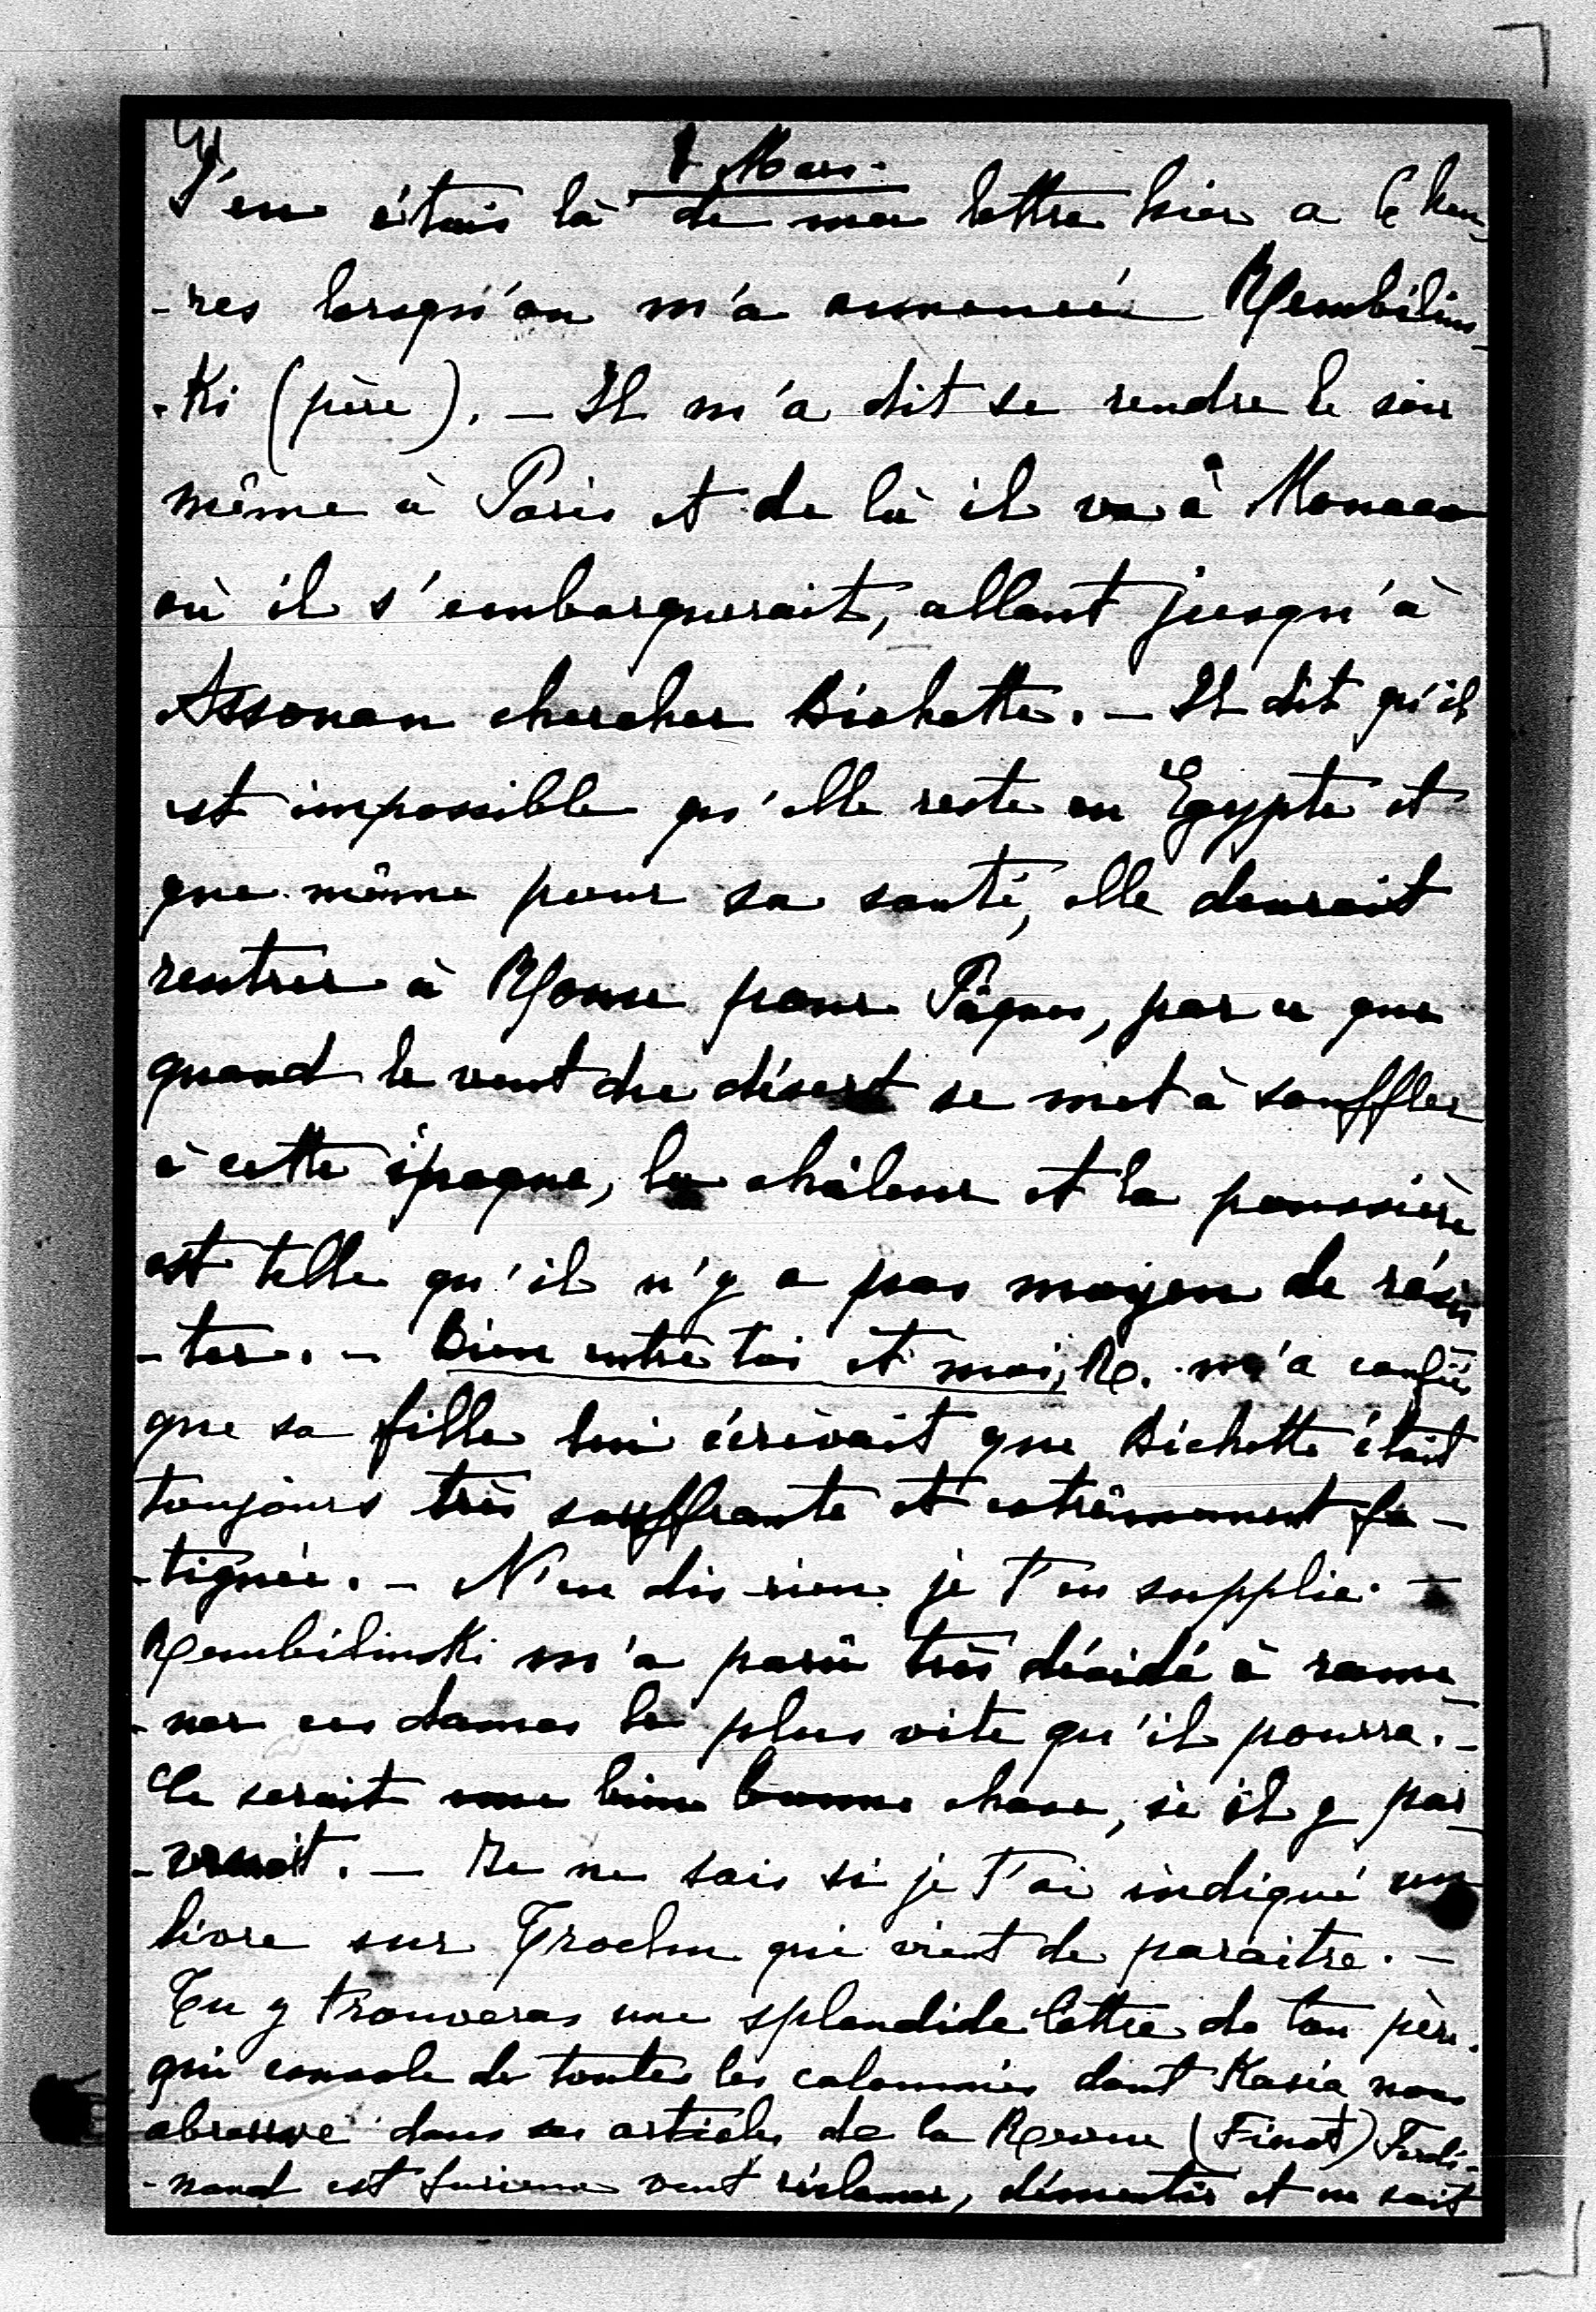 Mars.
J'en étais là de ma lettre hier a 6 heu-
-res lorsqu'on m'a annoncé Rembilins-
-Ki (père). — Il m'a dit se rendre le soir
même à Paris et de là il va à Monaco
où il s'embarquerait, allant jusqu'à
Assouan chercher Bichette. — Il dit qu'il
est impossible qu'elle reste en Egypte et
que même pour sa santé, elle devrait
rentrer à Rome pour Pâques, par ce que
quand le vent du désert se met à souffler
à cette époque, la châleur et la poussière
est telle qu'il n'y a pas moyen de résis
-ter. — Bien entre toi et moi, R. m'a confié
que sa fille lui écrivait que Bichette était
toujours très souffrante et extrêmement fa-
-tiguée. — N'en dis rien je t'en supplie. —
Rembilinski m'a parû très décidé à rame-
-ner ces dames le plus vite qu'il pourra. —
Ce serait une bien bonne chose, si il y par-
-venait. — Je ne sais si je t'ai indiqué un
livre sur Trochu qui vient de paraitre. —
Tu y trouveras une splendide lettre de ton père.
qui console de toutes les calomnies dont Kasia nous
abreuve dans ses articles de la Revue (Finot) Ferdi-
-nand est furieux veut réclamer, démentir et ne sait